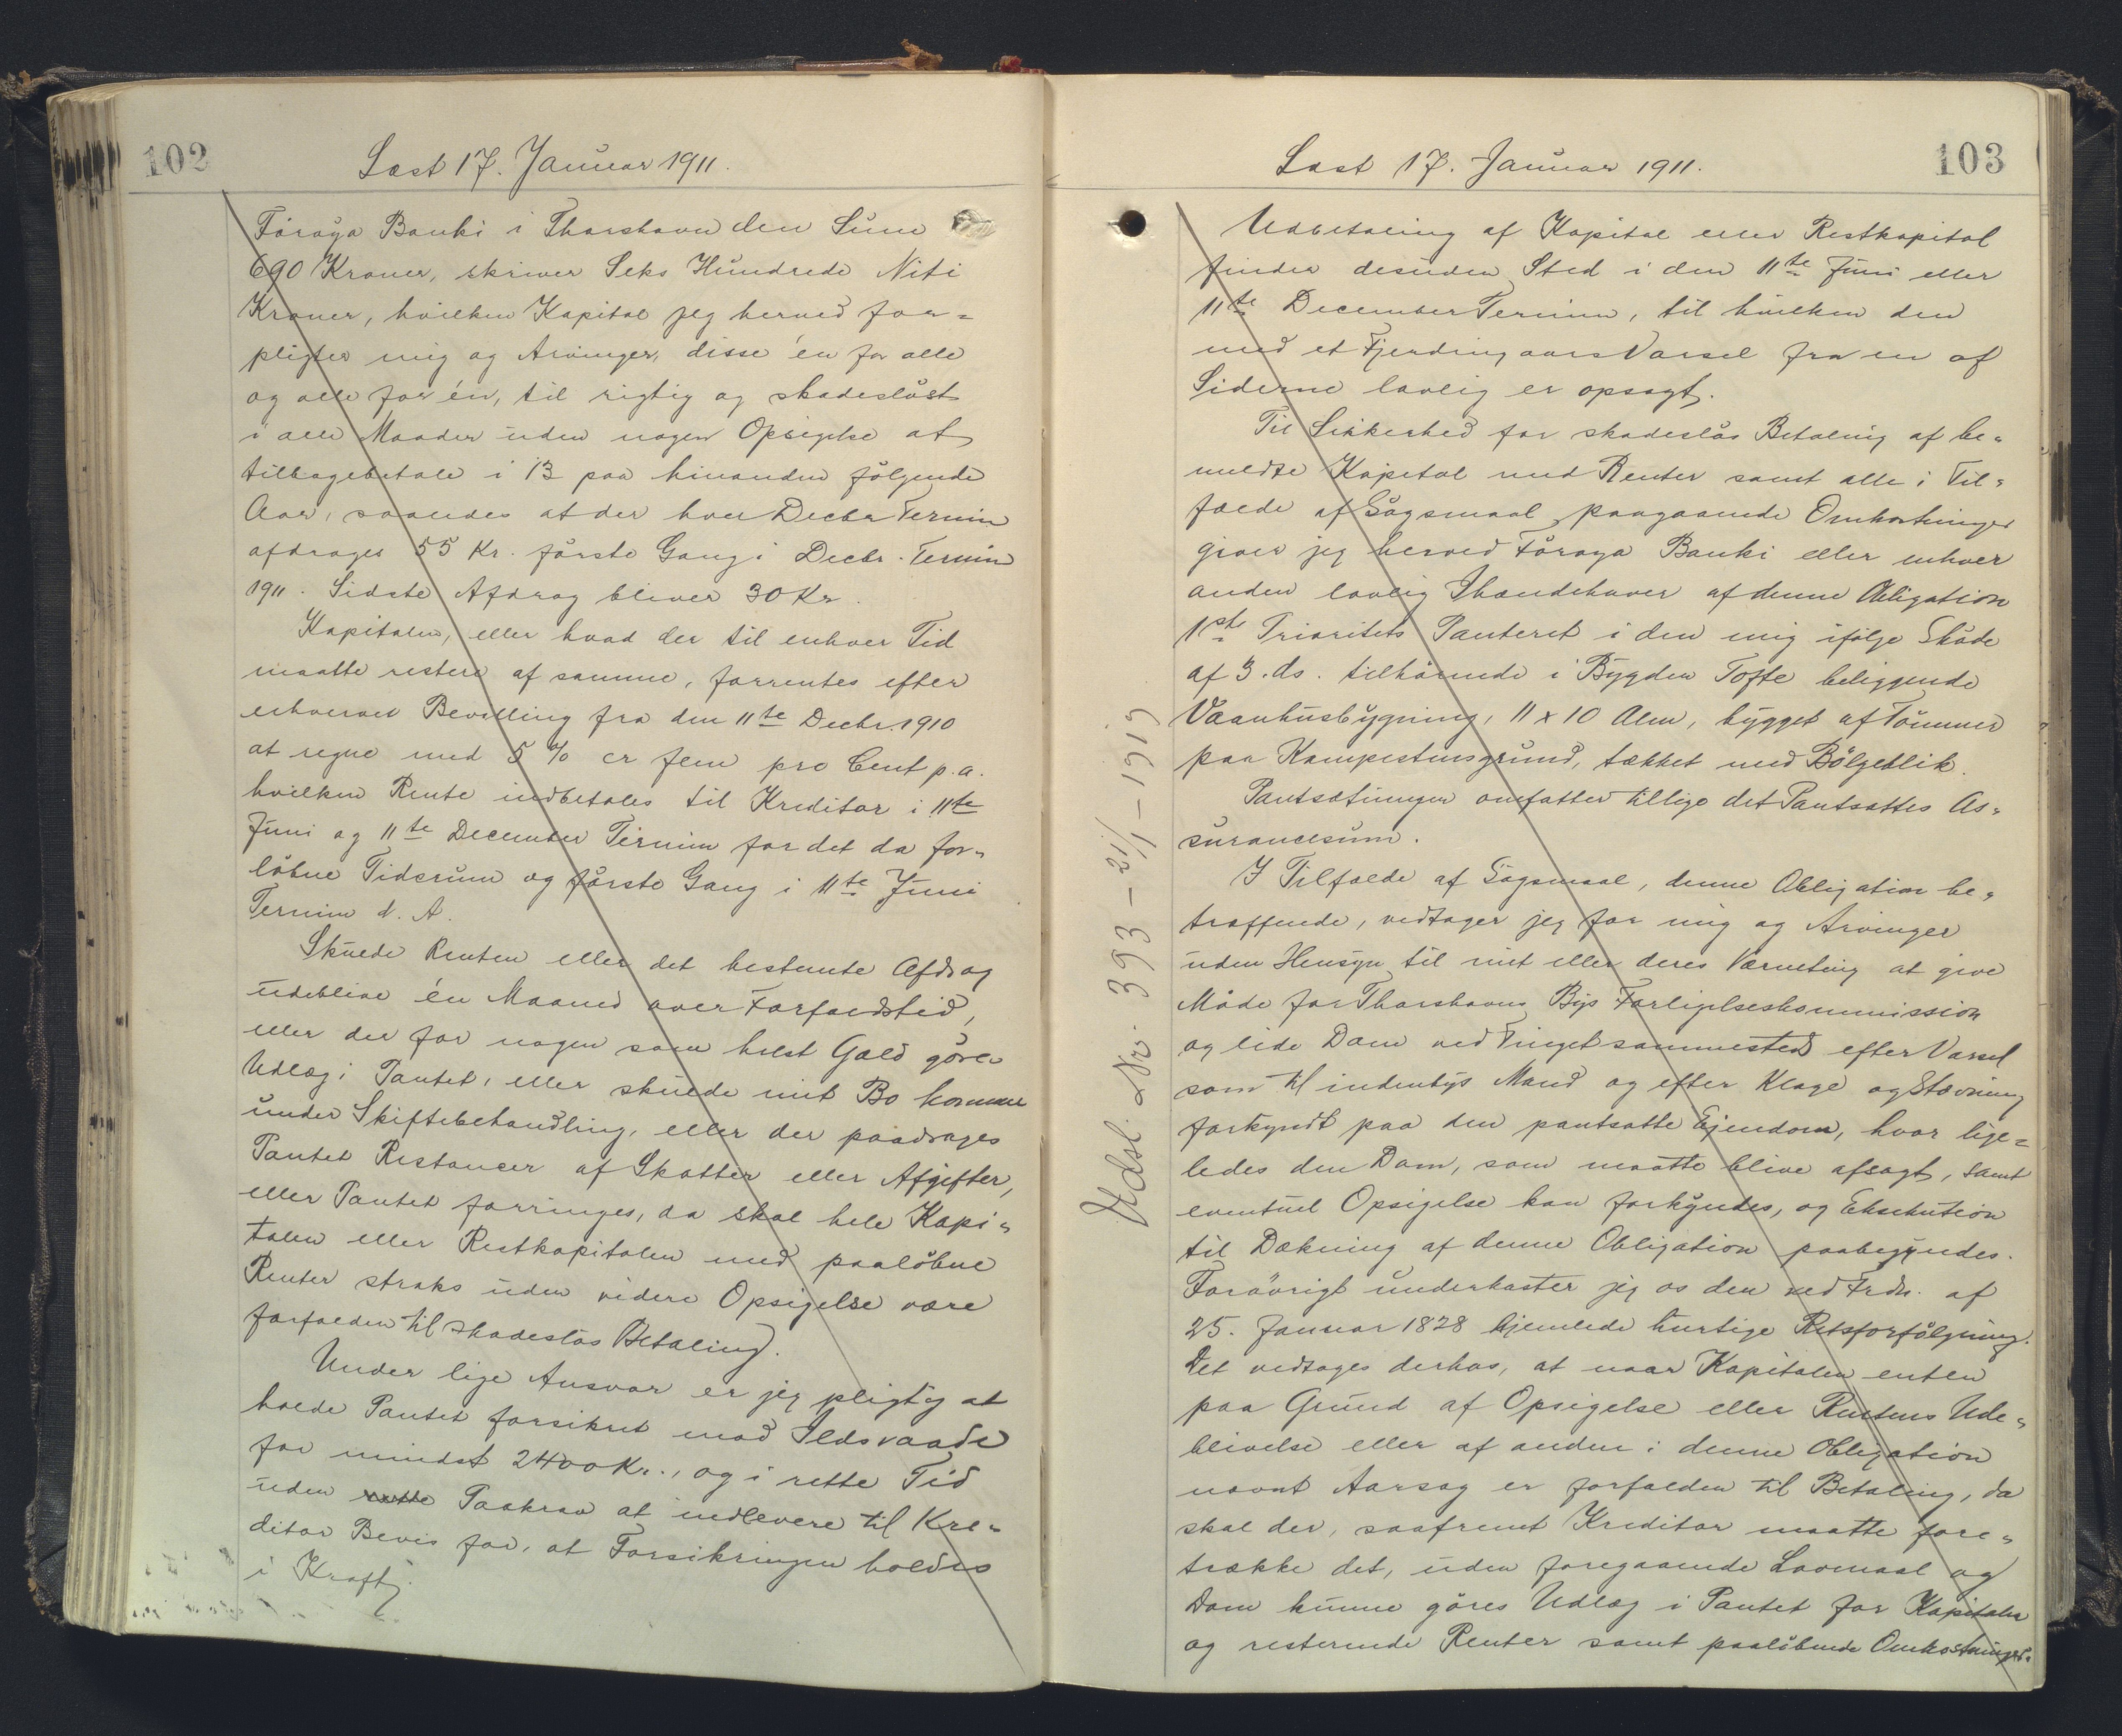 102
Læst 17. Januar 1911.
Föroya Banki i Thorshavn den Sum
690 Kroner, skriver Seks Hundrede Niti
Kroner, hvilken Kapital jeg herved for=
pligter mig og Arvinger, disse én for alle
og alle for én, til rigtig og skadesløst
i alle Maader uden nogen Opsigelse at
tilbagebetale i 13 paa hinanden følgende
Aar, saaledes at der hver Decbr Termin
afdrages 55 Kr. første Gang i Decbr. Termin
1911. Sidste Afdrag bliver 30 Kr.
Kapitalen, eller hvad der til enhver Tid
maatte restere af samme, forrentes efter
erhvervet Bevilling fra den 11te Decbr. 1910
at regne med 5 % er fem pro Cent p. a.
hvilken Rente indbetales til Kreditor i 11te
Juni og 11te December Termin for det da for=
løbne Tidsrum og første Gang i 11te Juni
Termin d. A.
Skulde Renten eller det bestemte Afdrag
udeblive én Maaned over Forfaldstid,
eller der for nogen som helst Gæld gøres
Udlæg i Pantet, eller skulde mit Bo komme
under Skiftebehandling, eller der paadrages
Pantet Restancer af Skatter eller Afgifter,
eller Pantet forringes, da skal hele Kapi=
talen eller Restkapitalen med paaløbne
Renter straks uden videre Opsigelse være
forfalden til skadesløs Betaling.
Under lige Ansvar er jeg pligtig at
holde Pantet forsikret mod Ildsvaade
for mindst 2400 Kr., og i rette Tid
uden Paakrav at indlevere til Kre=
ditor Bevis for, at Forsikringen holdes
i Kraft.
103
Læst 17. Januar 1911.
Udbetaling af Kapital eller Restkapital
finder desuden Sted i den 11te Juni eller
11te December Termin, til hvilken den
med et Fjerdingaars Varsel fra en af
Siderne lovlig er opsagt.
Til Sikkerhed for skadesløs Betaling af be=
meldte Kapital med Renter samt alle i Til=
fælde af Søgsmaal paagaaende Omkostninger
giver jeg herved Föroya Banki eller enhver
anden lovlig Ihændehaver af denne Obligation
1ste Prioritets Panteret i den mig ifølge Skøde
af 3. ds. tilhørende i Bygden Tofte beliggende
Vaanhusbygning, 11 x 10 Alen, bygget af Tømmer
paa Kampestensgrund, tækket med Bølgeblik.
Pantsætningen omfatter tillige det Pantsattes As=
surancesum.
I Tilfælde af Søgsmaal, denne Obligation be=
træffende, vedtager jeg for mig og Arvinger
uden Hensyn til mit eller deres Værneting at give
Møde for Thorshavns Bys Forligelseskommission
og lide Dom ved Tinget sammested efter Varsel
som til indenbys Mand og efter Klage og Stævning
forkyndt paa den pantsatte Ejendom, hvor lige=
ledes den Dom, som maatte blive afsagt, samt
eventuel Opsigelse kan forkyndes, og Eksekution
til Dækning af denne Obligation paabegyndes.
Forøvrigt underkaster jeg os den ved Frdn. af
25. Januar 1828 hjemlede hurtige Retsforfølgning.
Det vedtages derhos, at naar Kapitalen enten
paa Grund af Opsigelse eller Rentens Ude=
blivelse eller af anden i denne Obligation
nævnt Aarsag er forfalden til Betaling, da
skal der, saafremt Kreditor maatte fore=
trække det, uden foregaaende Lovmaal og
Dom kunne gøres Udlæg i Pantet for Kapitalen
og resterende Renter samt paaløbende Omkostninger.
Udsl. Nr. 393 - 21/1 - 1919